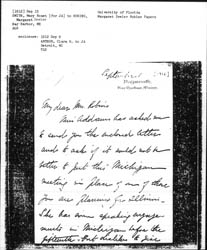 [1912] Sep 10
SMITH, Mary Rozet [for JA] to ROBINS,
Margaret Dreier
Bar Harbor, ME
2pp
University of Florida
Margaret Dreier Robins Papers
enclosure: 1912 Sep 6
ARTHUR, Clara B. to JA
Detroit, MI
My dear Mrs Robins
Miss Addams has asked me
to send you the enclosed letter
and to ask if it would not be
better to put this Michigan
meeting in place of one of those
you are planning for Illinois.
She has some speaking
in Michigan before the